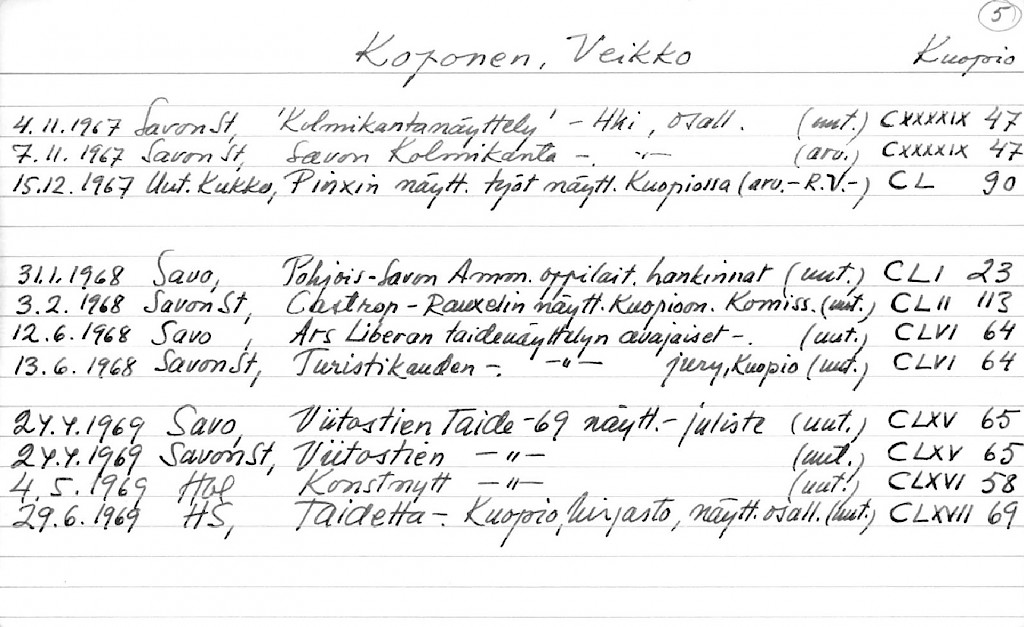 5
Koponen, Veikko Kuopio
4.11.1967 SavonSt, 'Kolmikantanäyttely' - Hki, osall. (uut.) CXXXXIX 47
7.11.1967 SavonSt, Savon Kolmikanta -. -"- (arv.) CXXXXIX 47
15.12.1967 Uut. Kukko, Pinxin näytt. työt näytt. Kuopiossa (arv.-R.V.-) CL 90
31.1.1968 Savo, Pohjois-Savon Amm. oppilait. hankinnat (uut.) CLI 23
3.2.1968 SavonSt, Castrop-Rauxelin näytt. Kuopioon. Komiss. (uut.) CLII 113
12.6.1968 Savo, Ars Liberan taidenäyttelyn avajaiset -. (uut.) CLVI 64
13.6.1968 SavonSt, Turistikauden -. -"- jury, Kuopio (uut.) CLVI 64
24.4.1969 Savo, Viitostien Taide-69 näytt.- juliste (uut.) CLXV 65
24.4.1969 SavonSt, Viitostien -"- (uut.) CLXV 65
4.5.1969 Hbl Konstnytt -"- (uut.) CLXVI 58
29.6.1969 HS, Taidetta -. Kuopio, kirjasto, näytt. osall. (uut.) CLXVII 69